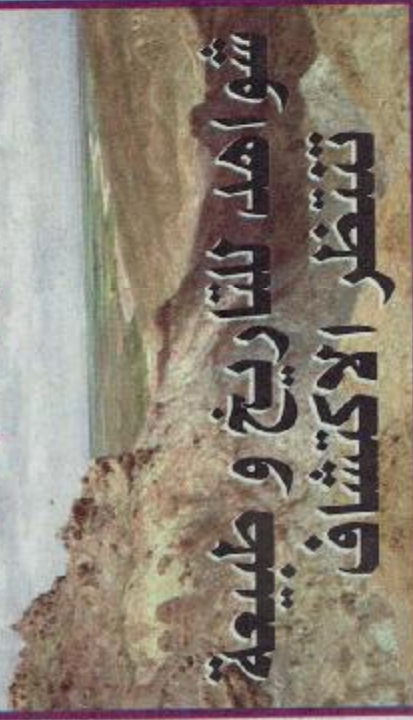 شواهد التاريخ و طبيعة
تنتظر الاكتشاف